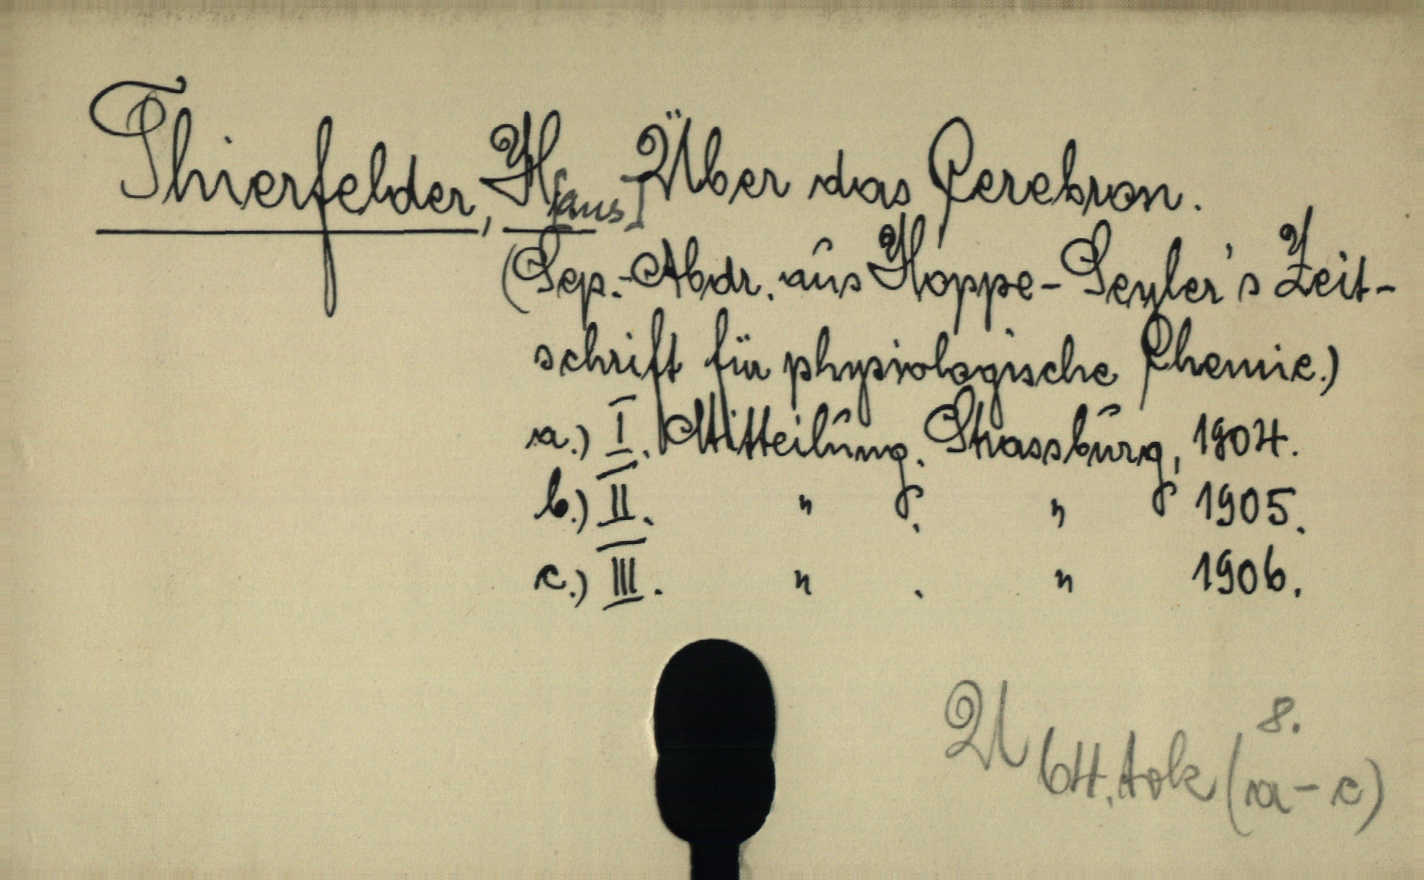 Thierfelder, H[ans] Über das Cerebron.
(Sep.-Abdr. aus Hoppe-Seyler's Zeit-
schrift für physiologische Chemie.)
a.) I. Mitteilung. Strassburg, 1904.
b.) II. " . " 1905.
c.) III. " . " 1906.
8.
(a-c)